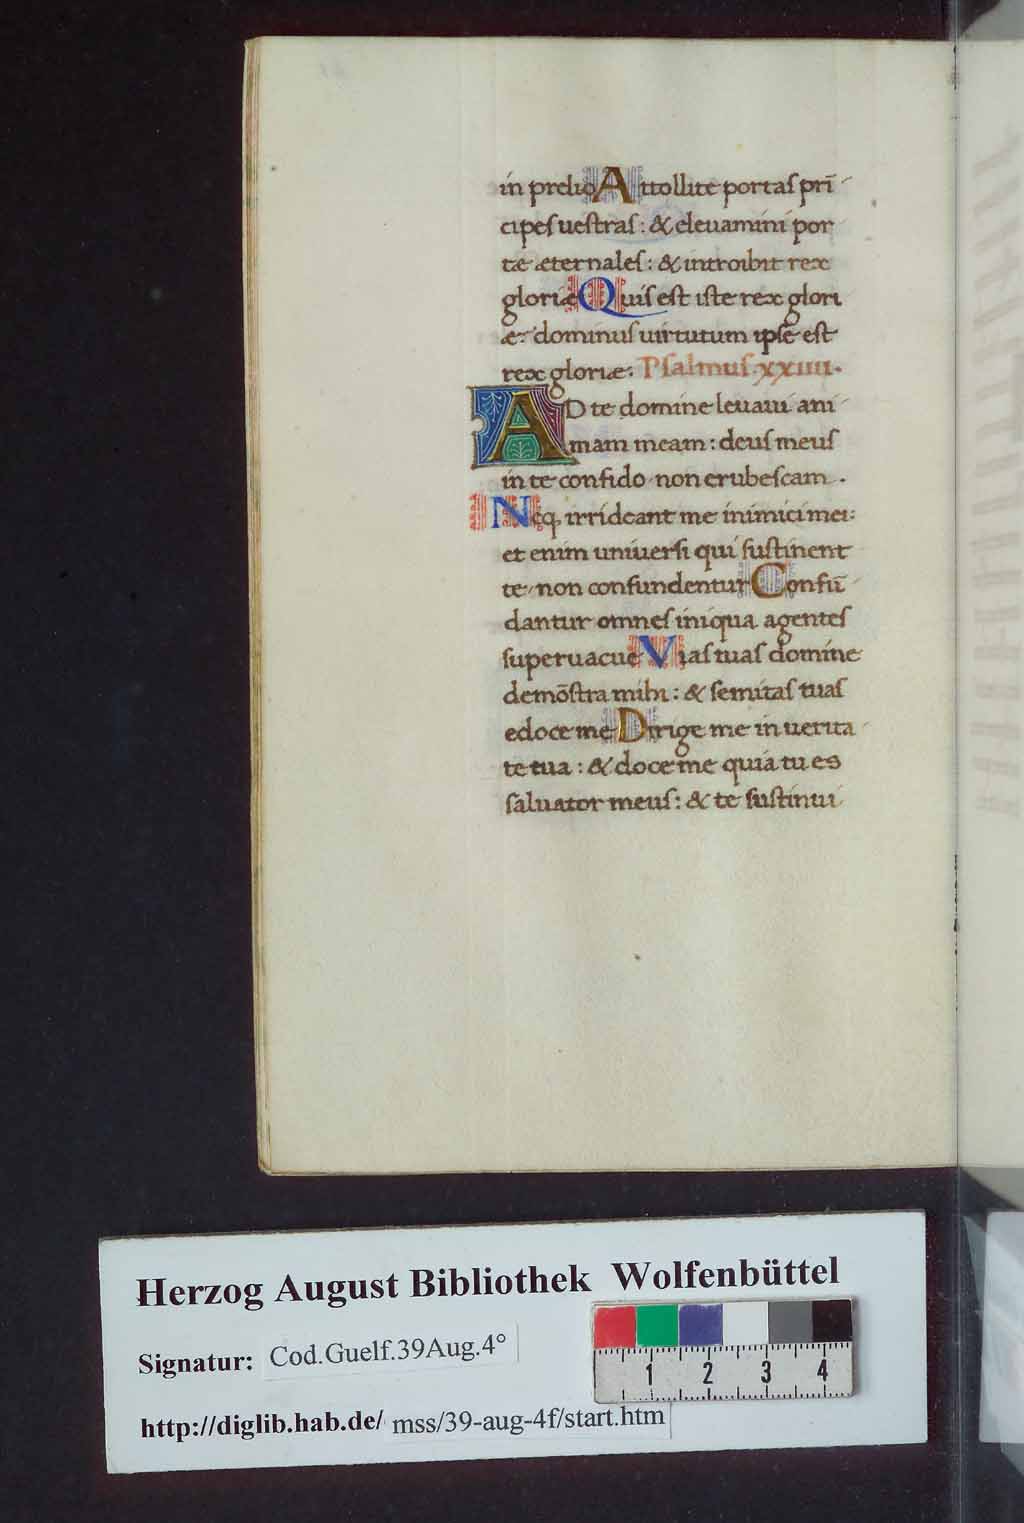 in prelio Attollite portas pri̅
cipes uestras: & eleuamini por
tæ æternales: & introibit rex
gloriæ Quis est iste rex glori
æ dominus uirtutum ipse est
rex gloriæ: Psalmus xxiiii.
AD te domine leuaui ani
mam meam: deus meus
in te confido non erubescam.
Neq, irrideant me inimici mei:
et enim uniuersi qui sustinent
te non confundentur Confu̅
dantur omnes iniqua agentes
superuacue Vias tuas domine
demo̅stra mihi: & semitas tuas
edoce me Dirige me in uerita
te tua: & doce me quia tu es
saluator meus: & te sustinui
Herzog August Bibliothek Wolfenbüttel
Signatur: Cod.Guelf.39Aug.4°
1 2 3 4
http://diglib.hab.de/ mss/39-aug-4f/start.htm